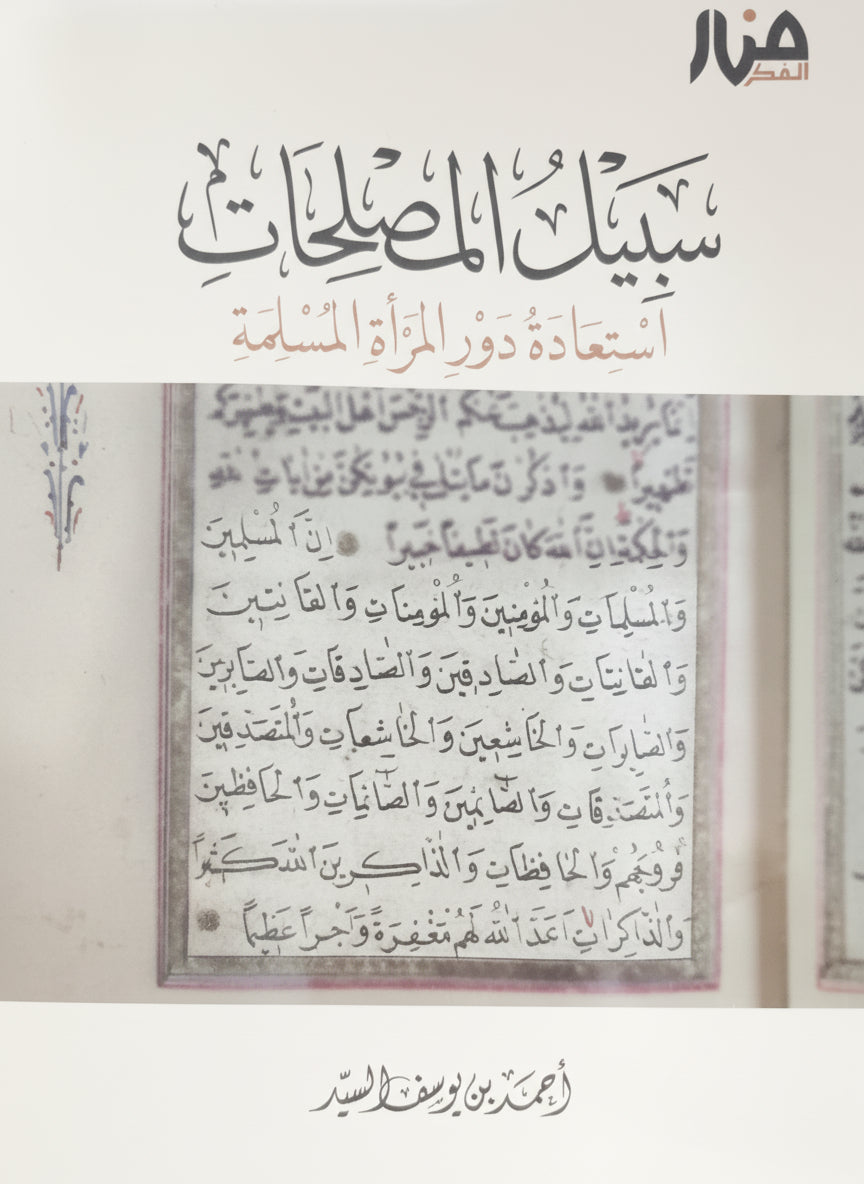 منار
الفكر
سَبِيْلُ المُصْلِحَاتِ
اسْتِعَادَةُ دَوْرِ المَرْأَةِ المُسْلِمَةِ
يُرِيدُ ٱللَّهُ لِيُذْهِبَ عَنكُمُ ٱلرِّجْسَ أَهْلَ ٱلْبَيْتِ وَيُطَهِّرَكُمْ
تَطْهِيرًا وَٱذْكُرْنَ مَا يُتْلَىٰ فِي بُيُوتِكُنَّ مِنْ ءَايَاتِ ٱللَّهِ
وَٱلْحِكْمَةِ إِنَّ ٱللَّهَ كَانَ لَطِيفًا خَبِيرًا إِنَّ ٱلْمُسْلِمِينَ
وَٱلْمُسْلِمَاتِ وَٱلْمُؤْمِنِينَ وَٱلْمُؤْمِنَاتِ وَٱلْقَانِتِينَ
وَٱلْقَانِتَاتِ وَٱلصَّادِقِينَ وَٱلصَّادِقَاتِ وَٱلصَّابِرِينَ
وَٱلصَّابِرَاتِ وَٱلْخَاشِعِينَ وَٱلْخَاشِعَاتِ وَٱلْمُتَصَدِّقِينَ
وَٱلْمُتَصَدِّقَاتِ وَٱلصَّائِمِينَ وَٱلصَّائِمَاتِ وَٱلْحَافِظِينَ
فُرُوجَهُمْ وَٱلْحَافِظَاتِ وَٱلذَّاكِرِينَ ٱللَّهَ كَثِيرًا
وَٱلذَّاكِرَاتِ أَعَدَّ ٱللَّهُ لَهُمْ مَغْفِرَةً وَأَجْرًا عَظِيمًا
أحمد بن يوسف السيّد